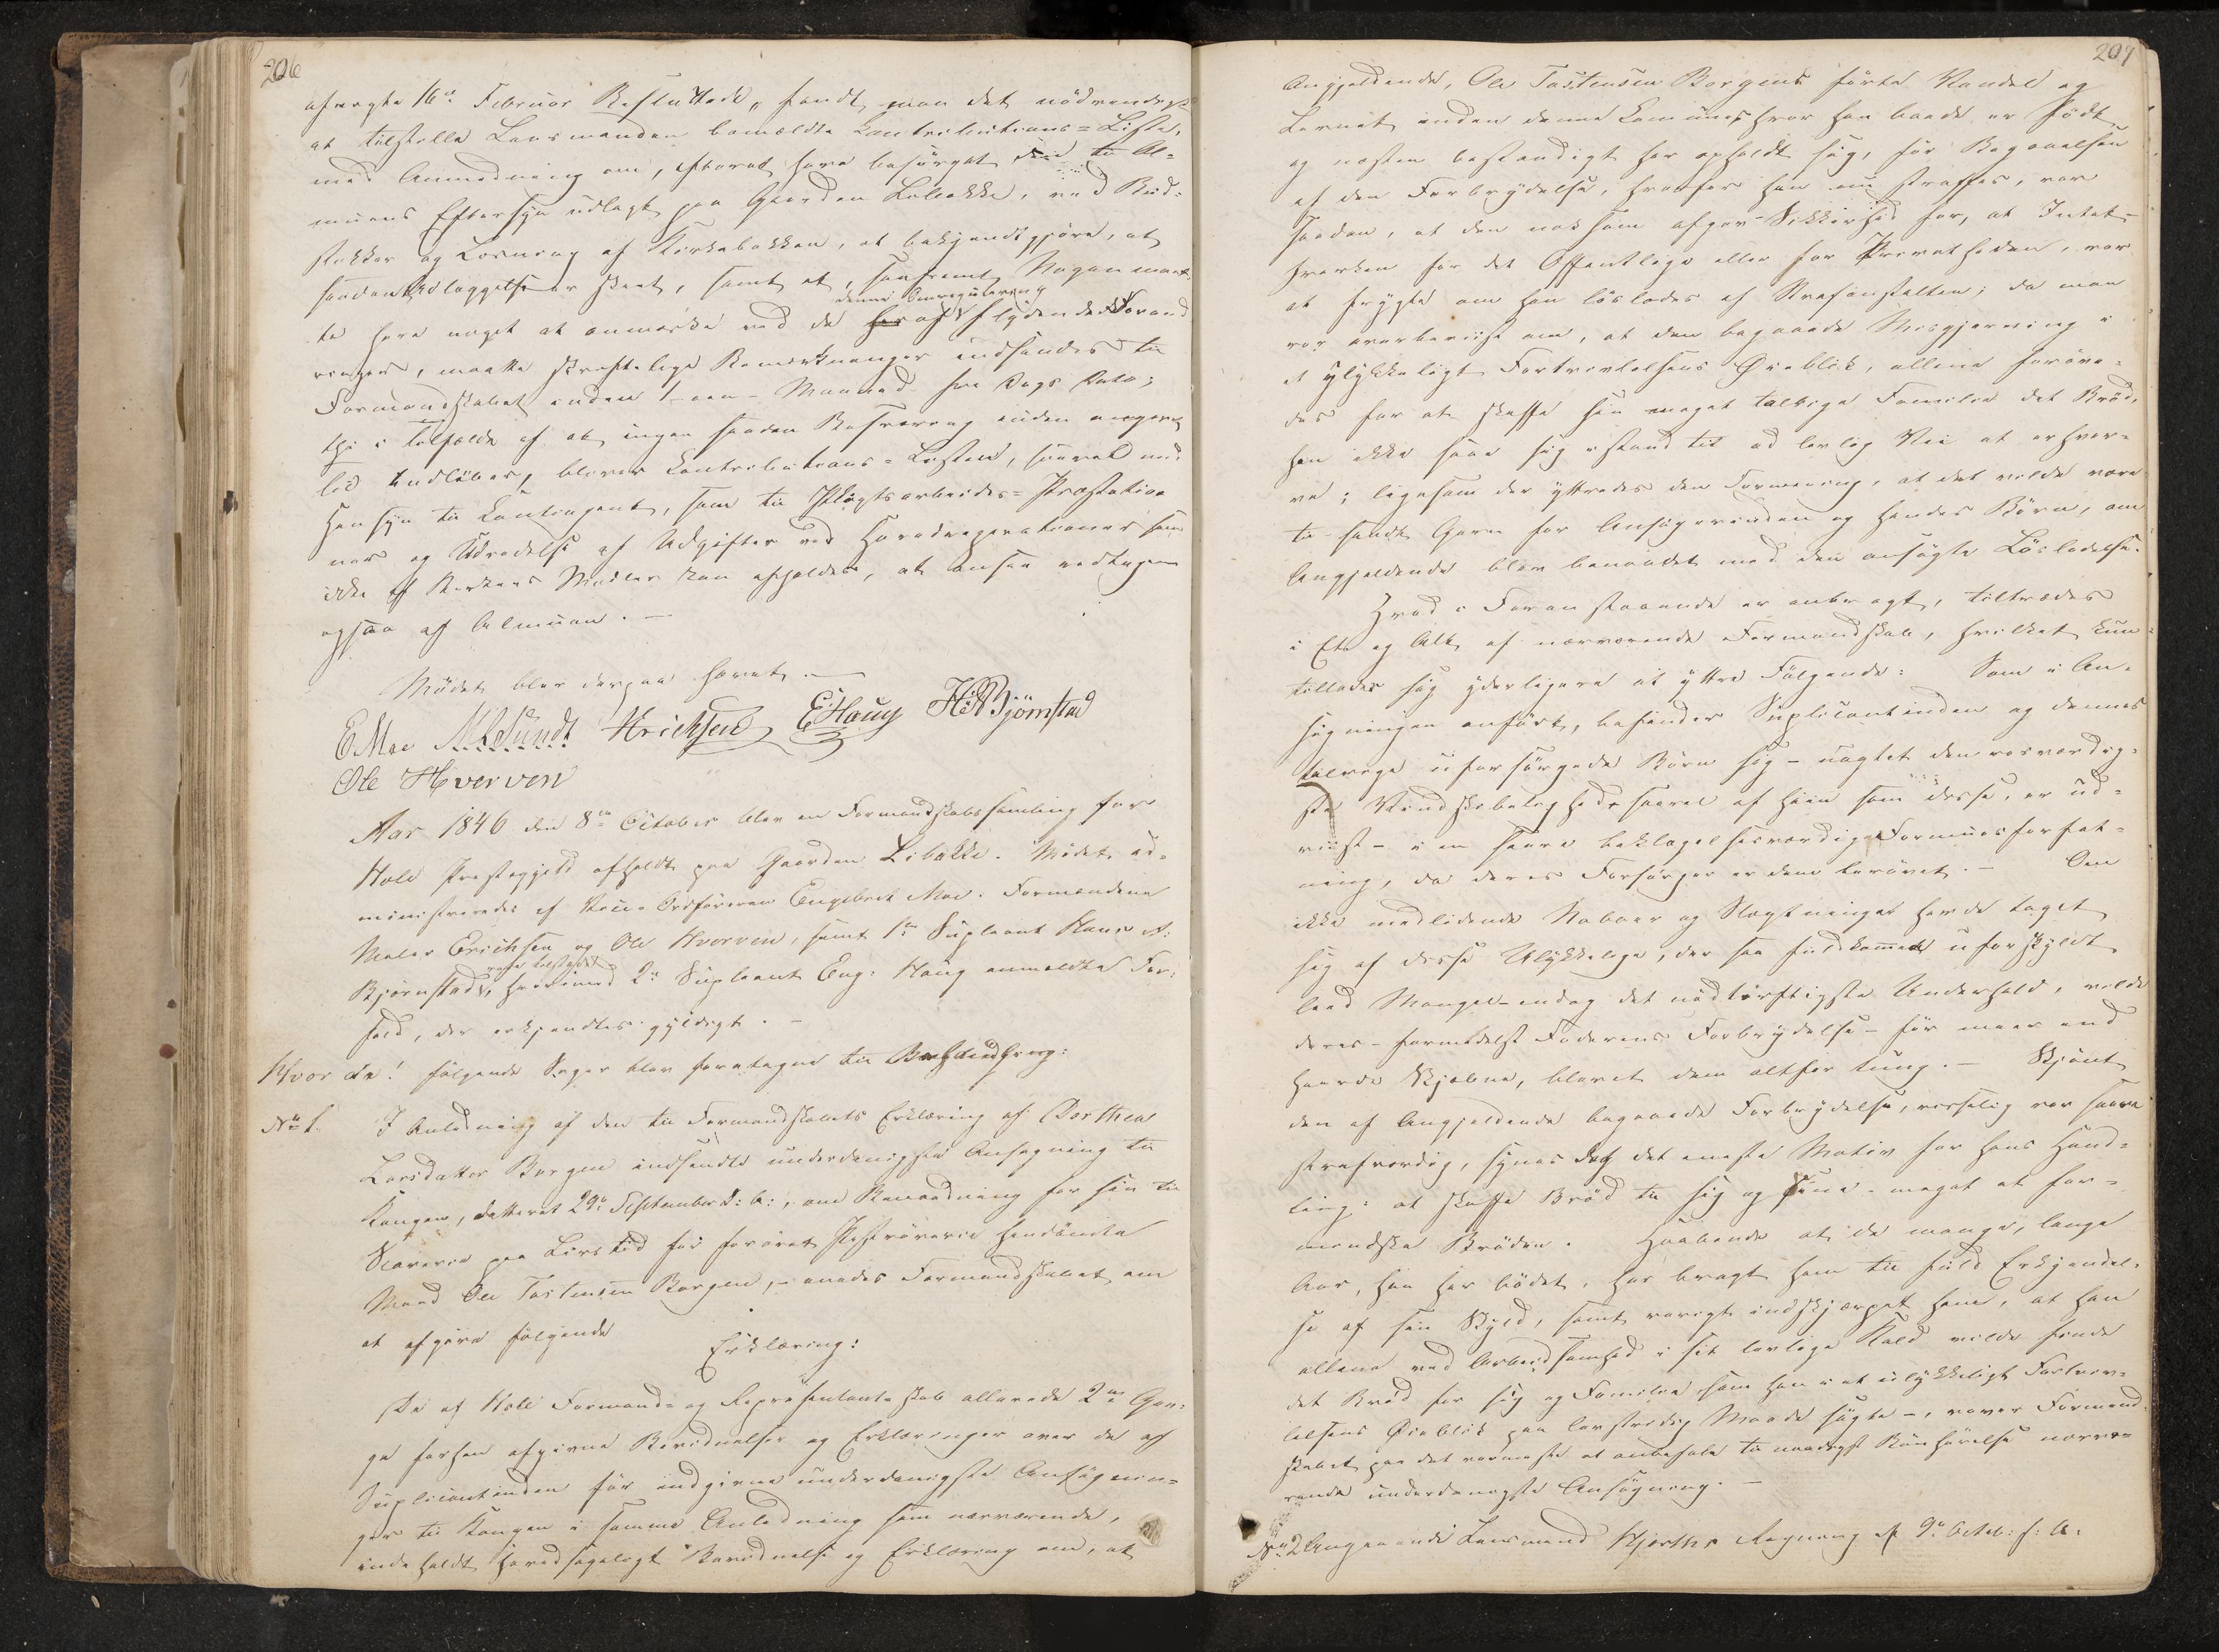 206
afvigte 16de Februar Besluttede, fandt man det nödvendigt
at tilstille Lensmanden bemældte Contributions=Liste,
med Anmodning om, efterat have besörget den til Al=
muens Eftersyn udlagt paa Gaarden Libakke, ved Bud=
stikker og Læsning af Kirkebakken, at bekjendtgjöre, at
saadan Udlæggelse er skeet, samt at, saafremt Nogen maat=
denne Omregulering
te have noget at anmærke ved de her af flydende Forand
ringer, maatte skriftelige Bemærkninger indsendes til
Formandskabet inden 1 – een – Maaned fra Dags Dato;
thi i Tilfælde af at ingen saadan Besværing inden angivne
Tid indlöber, bliver Contributions=Listen, saavel med
Hensyn til Contingent, som til Pligtsarbeides=Præstatio=
ner og Udredelse af Udgifter ved Hovedreparationer som
ikke af Kirkens Midler kan afholdes, at ansee vedtagen
ogsaa af Almuen. —
Mödet blev derpaa hævet. —
E Moe N L Sundt Hrichsen E Haug H A Bjørnstad
Ole Hverven
Aar 1846 den 8de October blev en Formandskabssamling for
Hole Præstegjeld afholdt paa Gaarden Libakke. Mödet ad=
ministreredes af Vice Ordföreren Engebret Moe. Formændene
Maler Erichsen og Ole Hverven, samt 1ste Supleant Hans A:
vare tilstede
Bjørnstad, hvorimod 2de Supleant Eng: Haug anmeldte For=
fald, der erkjendtes gyldigt. —
Hvor da! følgende Sager blev foretagne til Behandling:
No 1. I Anledning af den til Formandskabets Erklæring af Dorthea
Larsdatter Borgen indsendte underdanigste Ansøgning til
Kongen, datteret 29de September d: A:, om Benaadning for sin til
Slaverie paa Livstid for forövet Poströverie hendömte
Mand Ole Torstensen Borgen, – enedes Formandskabet om
at afgive følgende
Erklæring:
De af Hole Formand= og Repræsentantskab allerede 2de Gan=
ge forhen afgivne Bevidnelser og Erklæringer over de af
Suplicantinden för indgivne underdanigste Ansögnin=
ger til Kongen i samme Anledning som nærværende,
indeholdt hovedsageligt Bevidnelse og Erklæring om, at
207
Angjeldende, Ole Torstensen Borgens förte Vandel og
Levnet inden denne Commune, hvor han baade er födt
og næsten bestandigt har opholdt sig, för Begaaelsen
af den Forbrydelse, hvorfor han nu straffes, var
saadan, at den noksom afgav Sikkerhed for, at Intet
hverken for det Offentlige eller for Privatheden, var
at frygte om han löslades af Strafanstalten; da man
var overbeviist om, at den begaaede Misgjerning i
et ulykkeligt Fortvivlelsens Øieblik, allene foröve=
des for at skaffe sin meget talrige Familie det Bröd,
han ikke saae sig istand til ad lovlig Vei at erhver=
ve; ligesom der yttredes den Formening, at det vilde være
til sandt Gavn for Ansögerinden og hendes Börn, om
Angjeldende blev benaadet med den ansögte Lösladelse.
Hvad i Foranstaaende er anbragt, tiltrædes
i Et og Alt af nærværende Formandskab, hvilket kun
tillader sig yderligere at yttre Fölgende: Som i An=
sögningen anfört, befinder Suplicantinden og dennes
talrige uforsörgede Börn sig – uagtet den rosværdig=
ste Vindskibelighed, saavel af hiin som disse, er ud=
viist – i en saare beklagelsesværdig Formuesforfat=
ning, da deres Forsörger er dem berövet. — Om
ikke medlidende Naboer og Slægtninger havde taget
sig af disse Ulykkelige, der saa fuldkommen uforskyldt
leed Mangel – endog det nödtörftigste Underhold, vilde
deres – formedelst Faderens Forbrydelse – för meer end
haarde Skjæbne, blevet dem altfor tung. — Skjönt
den af Angjeldende begaaede Forbrydelse, visselig var saare
strafværdig, synes dog det eneste Motiv for hans Hand=
ling: at skaffe Bröd til sig og sine – meget at for=
mindske Bröden. Haabende at de mange, lange
Aar, han har bödet, har bragt ham til fuld Erkjendel=
se af sin Skyld, samt varigt indskjærpet ham, at han
allene ved Arbeidsomhed i sit lovlige Kald vilde finde
det Bröd for sig og Familie som han i et ulykkeligt Fortviv=
lelsens Øieblik paa lovstridig Maade sögte –, vover Formand=
skabet paa det varmeste at anbefale til naadigst Bönhörelse nærvæ=
rende underdanigste Ansögning. —
No 2 Angaaende Lensmand Hjorths Regning af 9de Octob: f: A: